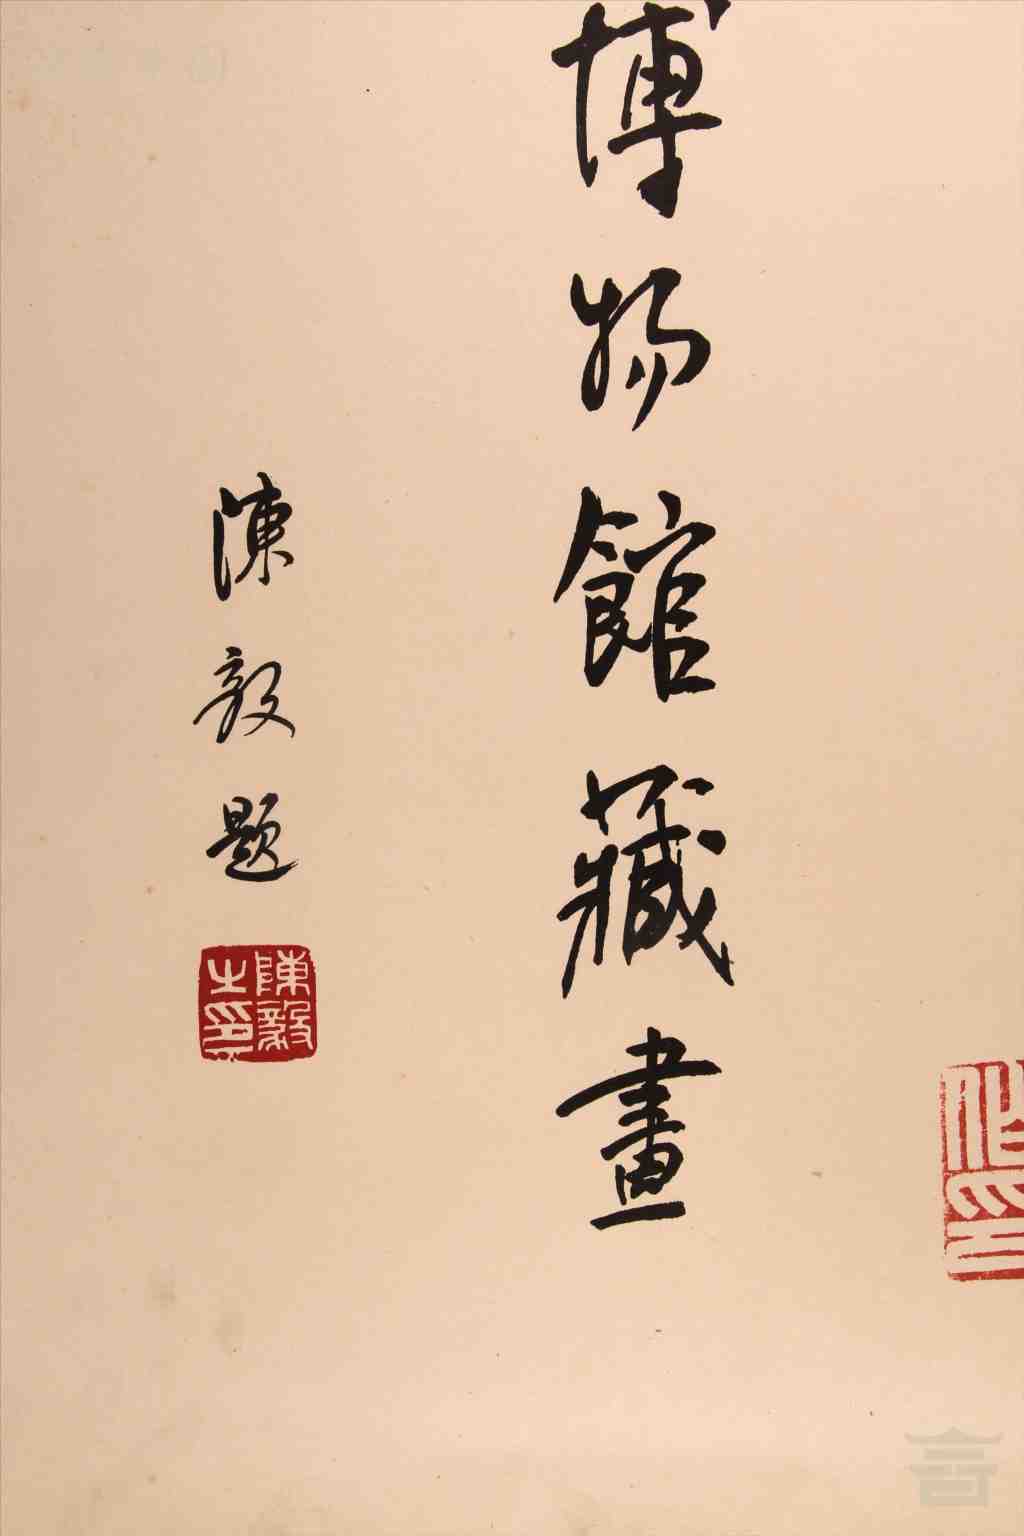 博物館藏畫
陳毅题
陳毅之印